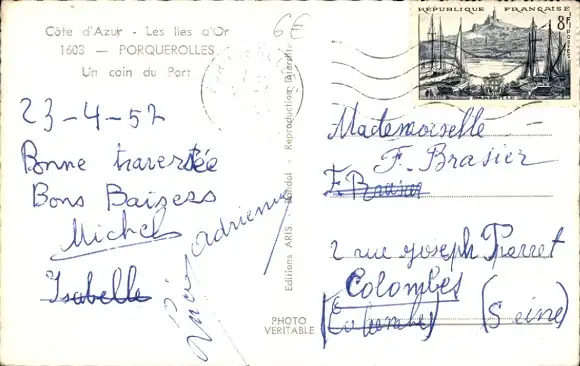 Côte d'Azur - Les Iles d'Or
1603 — PORQUEROLLES
Un coin du Port
6€
23-4-57
Bonne traversée
Bons Baisers
Michel
Isabelle
Adrienne
Editions ARIS Reproduction Interdite
PHOTO
VERITABLE
RÉPUBLIQUE FRANÇAISE
8F
POSTES
MARSEILLE
Mademoiselle
F. Brasier
F. Brasier
2 rue Joseph Pierret
Colombes
(Colombes) (Seine)